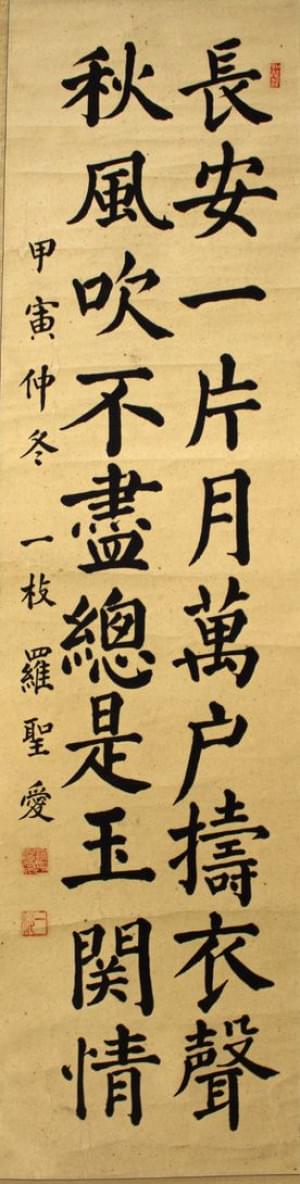 長安一片月萬户擣衣聲
秋風吹不盡總是玉関情
甲寅仲冬 一枝羅聖愛